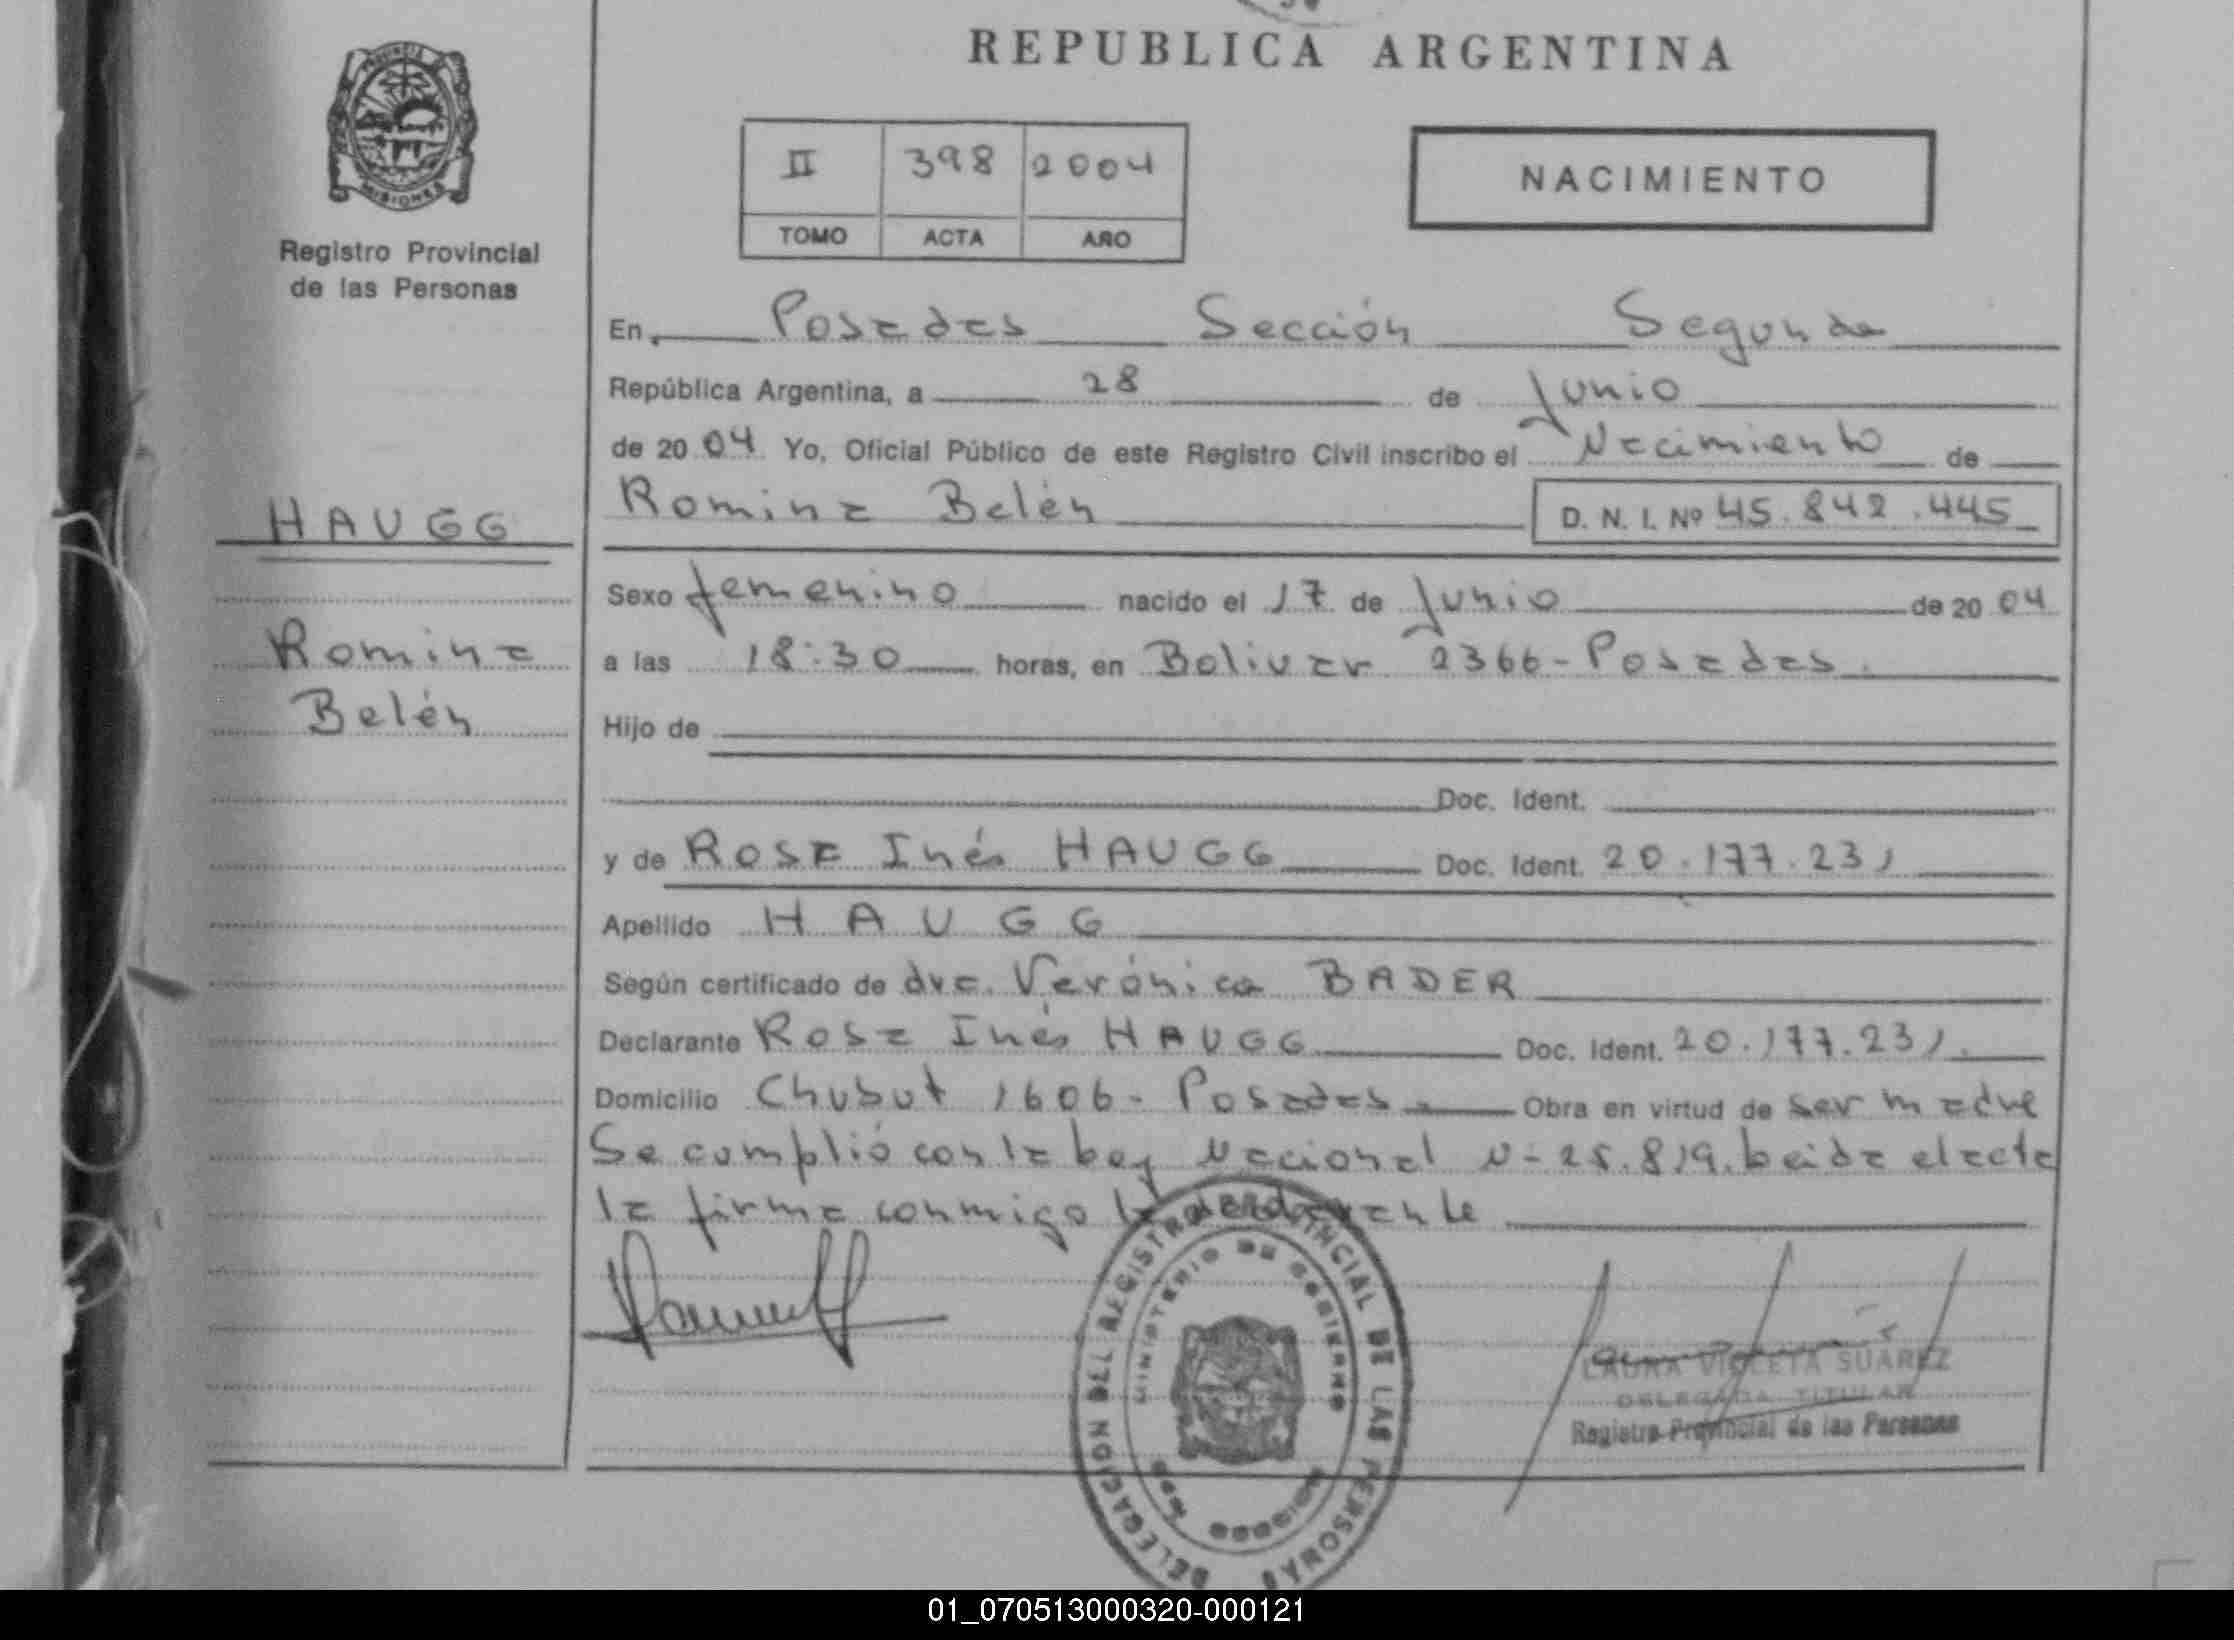 REPUBLICA ARGENTINA
PROVINCIA
MISIONES
Registro Provincial
de las Personas
II 398 2004
TOMO ACTA AÑO
NACIMIENTO
En Posadas Sección Segunda
República Argentina, a 28 de Junio
de 2004 Yo, Oficial Público de este Registro Civil inscribo el Nacimiento de
Romina Belén D. N. I. Nº 45.842.445
HAUGG
Romina
Belén
Sexo femenino nacido el 17 de Junio de 2004
a las 18:30 horas, en Bolivar 2366-Posadas.
Hijo de
Doc. Ident.
y de Rosa Inés HAUGG Doc. Ident. 20.177.231
Apellido HAUGG
Según certificado de dra. Verónica BADER
Declarante Rosa Inés HAUGG Doc. Ident. 20.177.231.
Domicilio Chubut 1606- Posadas Obra en virtud de ser madre
Se cumplió con la Ley Nacional N-25.819. Leida el acta
la firma conmigo la declarante
DELEGACION DEL REGISTRO PROVINCIAL DE LAS PERSONAS
MINISTERIO DE GOBIERNO
MISIONES
LAURA VIOLETA SUAREZ
DELEGADA TITULAR
Registro Provincial de las Personas
01_070513000320-000121